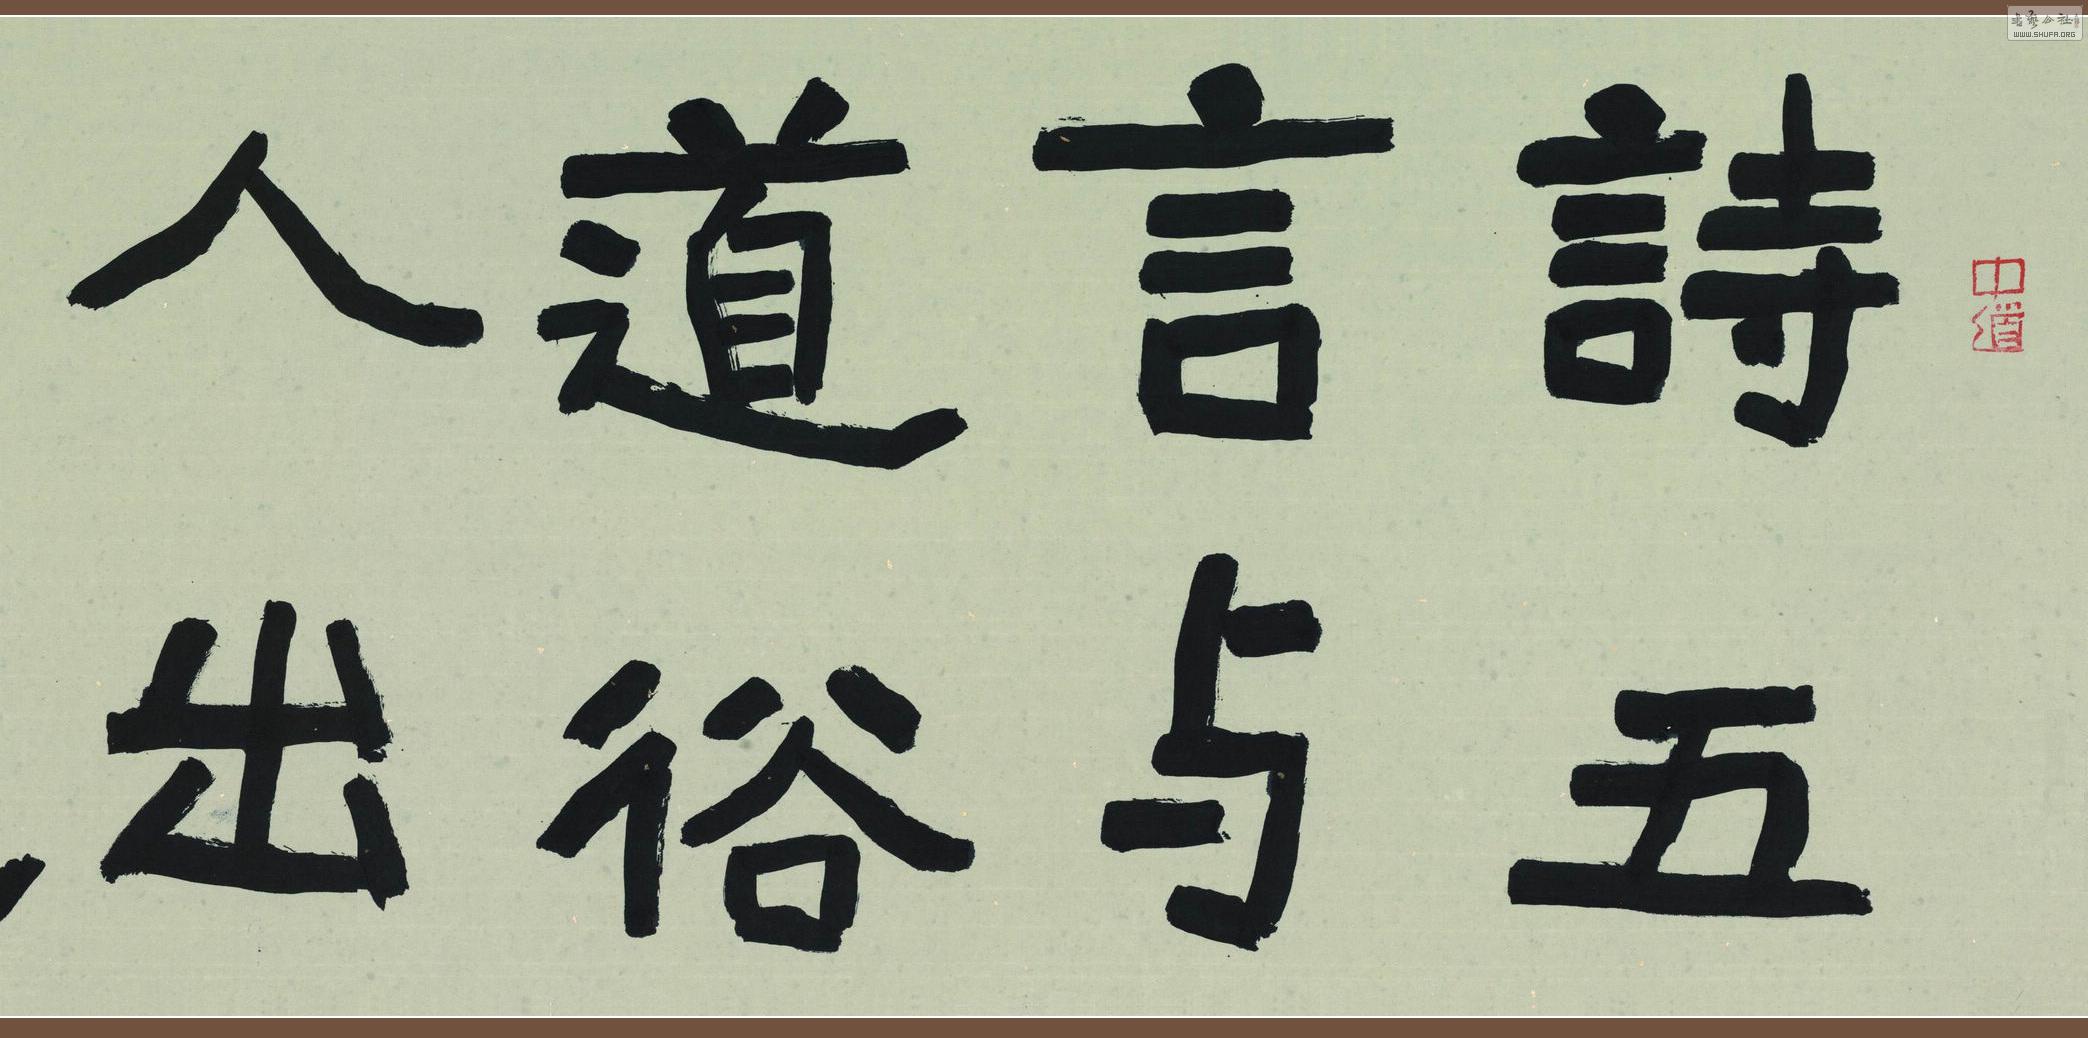 詩五
言与
道俗
人出
中道
書藝公社
WWW.SHUFA.ORG